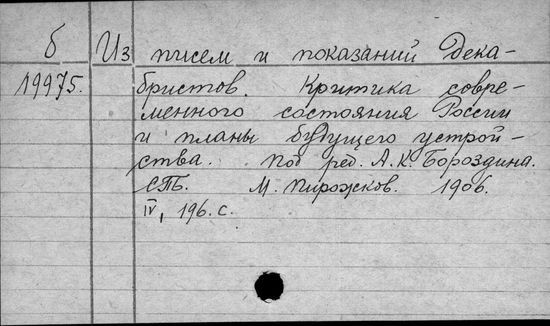 б Из писем и показаний Дека-
19975. бристов. Критика совре-
менного состояния России
и планы будущего устрой-
ства. под ред. А. К. Бороздина.
СПБ. М. Пирожков. 1906.
IV, 196. с.